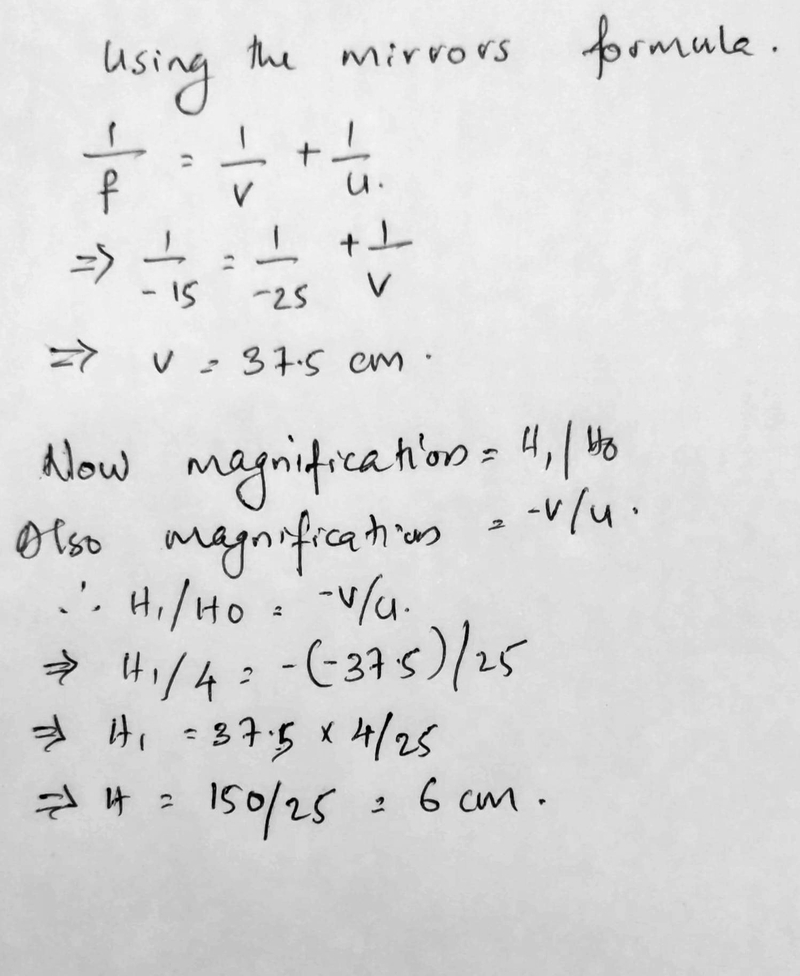 Using the mirrors formula.
1/f = 1/v + 1/u.
=> 1/-15 = 1/-25 + 1/v
=> v = 37.5 cm.
Now magnification = H1/H0
Also magnification = -v/u.
∴ H1/H0 = -v/u.
=> H1/4 = -(-37.5)/25
=> H1 = 37.5 x 4/25
=> H = 150/25 = 6 cm.